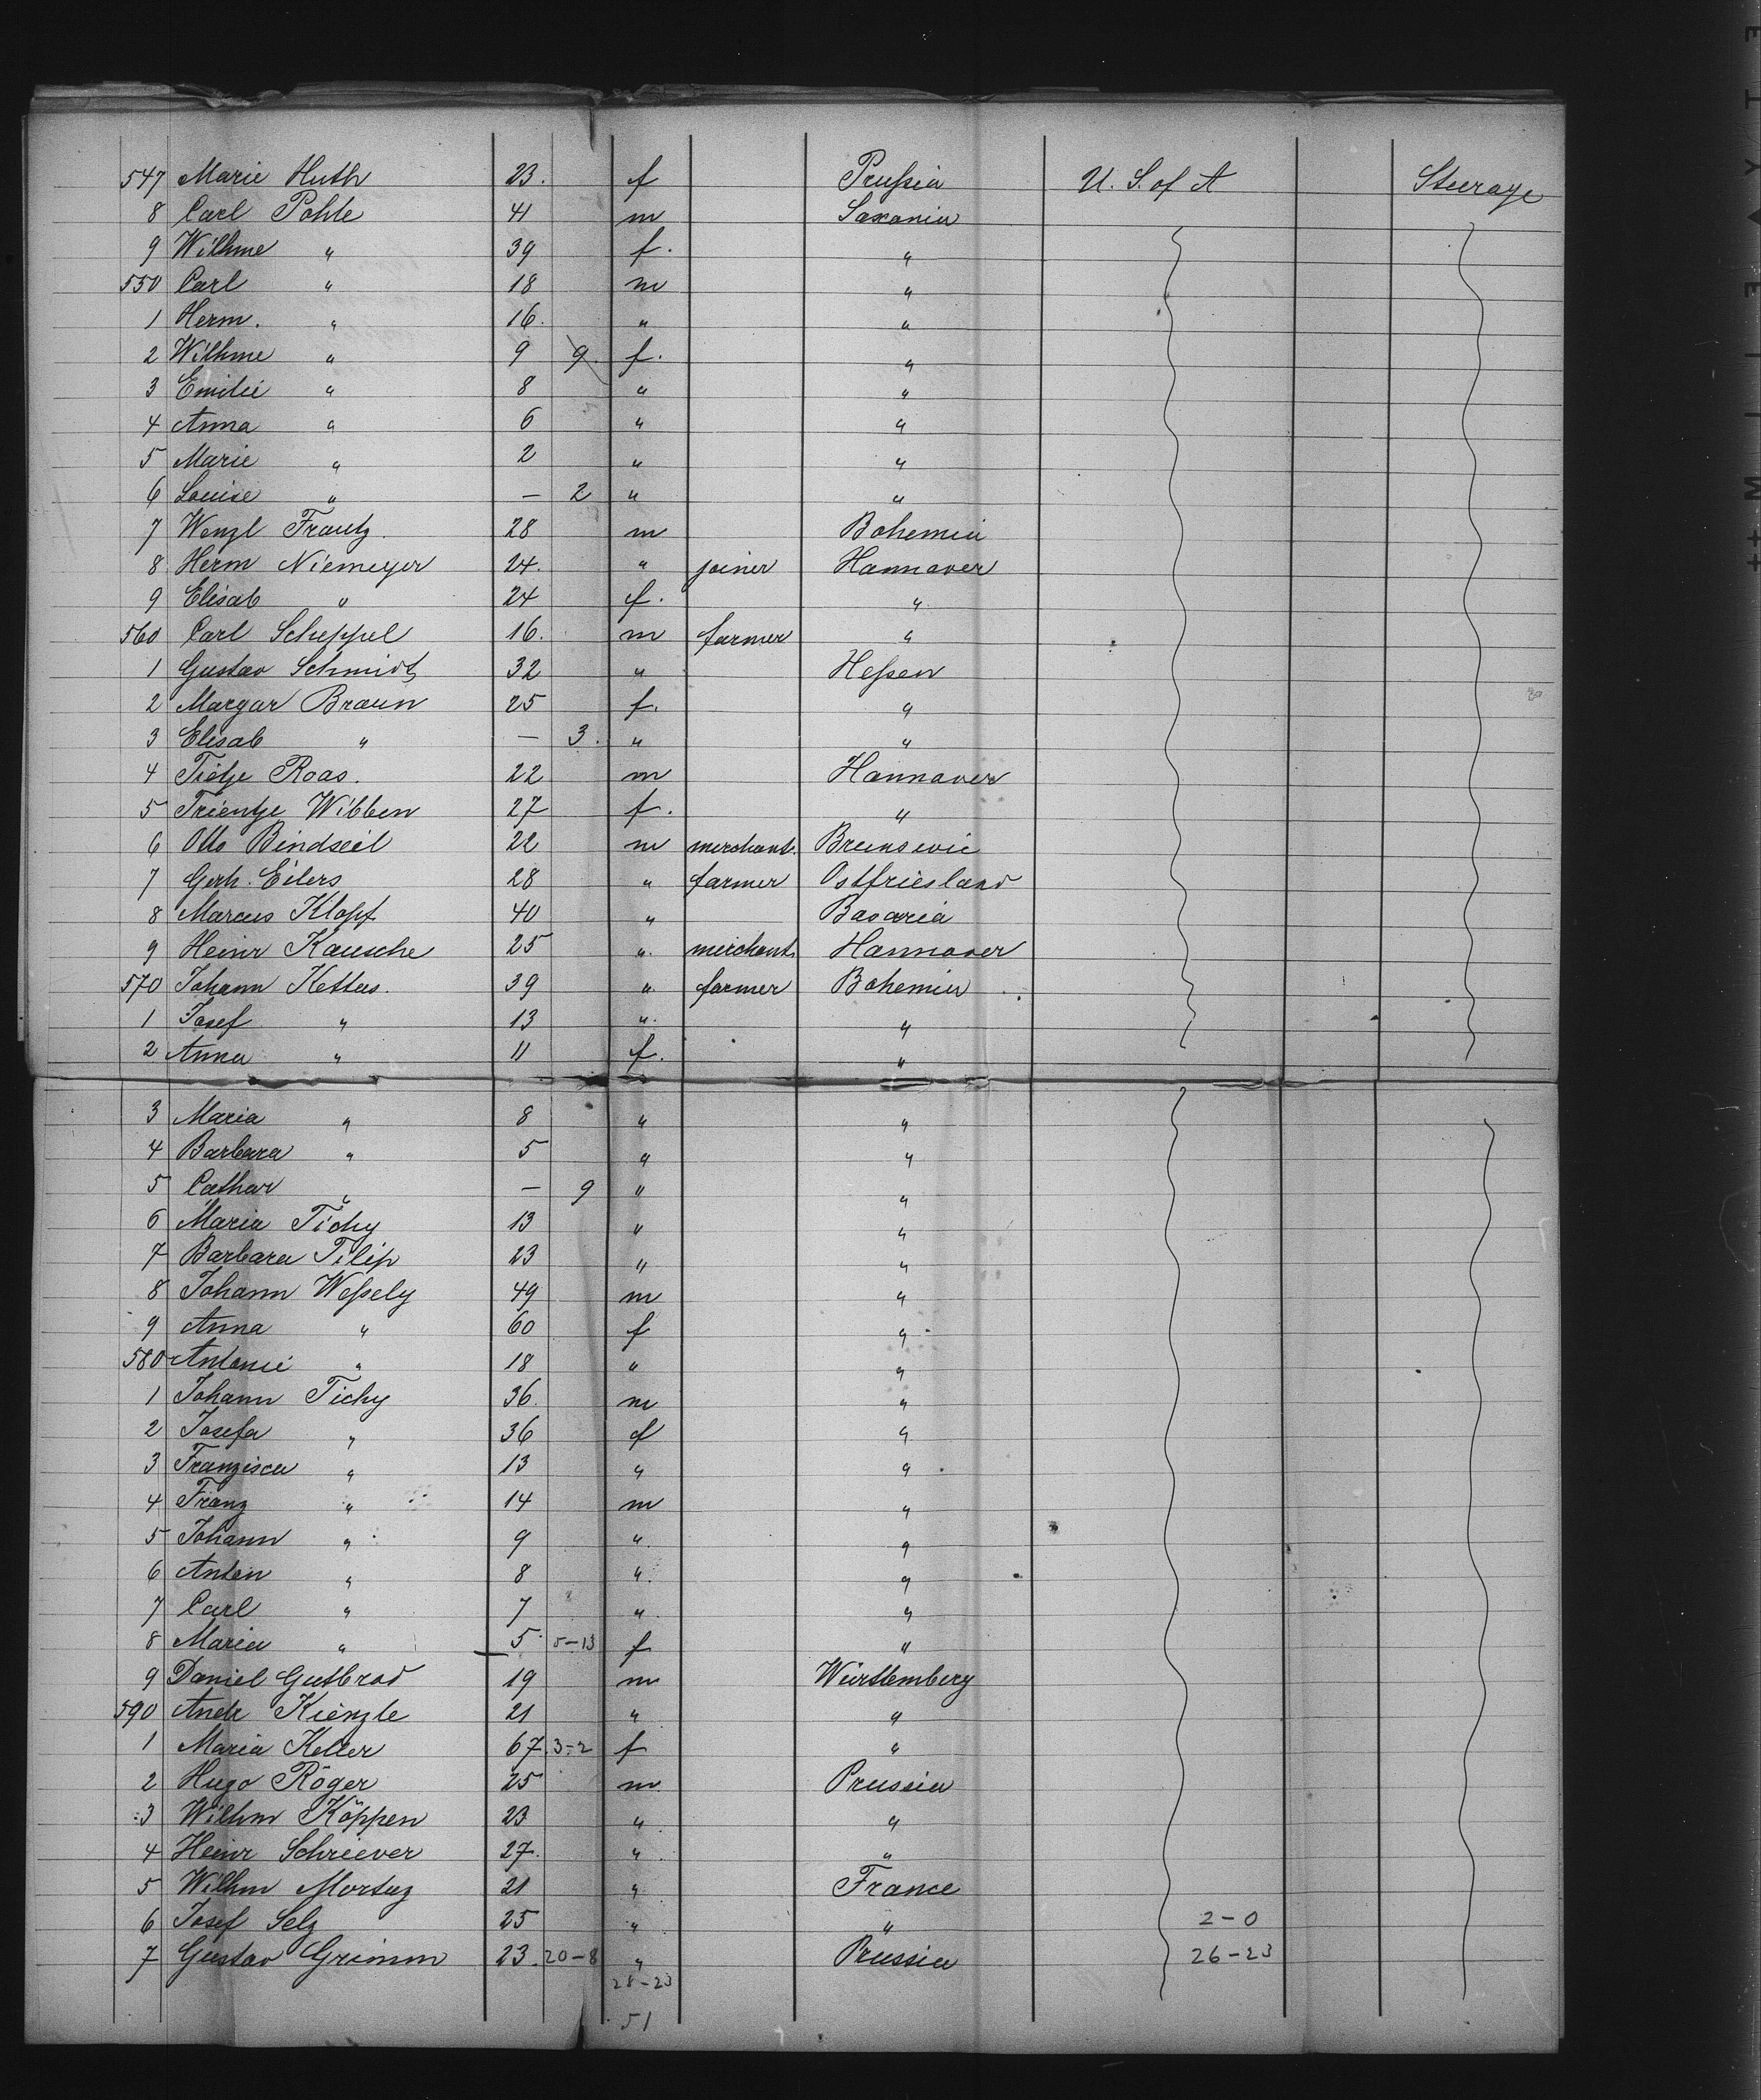 547 Marie Huth 23. f Prußia U. S. of A Steerage
8 Carl Pohle 41 m Saxonia
9 Wilhme " 39 f. "
550 Carl " 18 m "
1 Herm. " 16. " "
2 Wilhme " 9 9. f. "
3 Emilie " 8 " "
4 Anna " 6 " "
5 Marie " 2 " "
6 Louise " — 2 " "
7 Wenzl Frautz. 28 m Bohemia
8 Herm Niemeyer 24. " joiner Hannover
9 Elisab " 24 f. "
560 Carl Scheppel 16. m farmer "
1 Gustav Schmidt 32 " Heßen
2 Margar Braun 25 f. "
3 Elisab " — 3. " "
4 Tietje Roas. 22 m Hannover
5 Trientje Wibben 27 f. "
6 Otto Bindseil 22 m merchant. Brunswic
7 Gerh. Eilers 28 " farmer Ostfriesland
8 Marcus Klopf 40 " Bavaria
9 Heinr Kausche 25 ". merchant Hannover
570 Johann Kettas. 39 " farmer Bohemia
1 Josef " 13 ". "
2 Anna " 11 f. "
3 Maria " 8 " "
4 Barbara " 5 " "
5 Cathar " — 9 " "
6 Maria Tichy 13 " "
7 Barbara Filip 23 " "
8 Johann Weßely 49 m "
9 Anna " 60 f "
580 Antonie " 18 " "
1 Johann Tichy 36. m "
2 Josefa " 36 f "
3 Franzisca " 13 " "
4 Franz " 14 m "
5 Johann " 9 ". "
6 Anton " 8 ". "
7 Carl " 7 " "
8 Maria " 5 5-13 f "
9 Daniel Gutbrod 19 m Württemberg
590 Andr Kienzle 21 " "
1 Maria Keller 67 3-2 f "
2 Hugo Röger 25 m Prussia
3 Wilhm Köppen 23 " "
4 Heinr Schriever 27. " "
5 Wilhm 21 " France
6 Josef Selz 25 " " 2-0
7 Gustav Grimm 23. 20-8 " Prussia 26-23
28-23
51